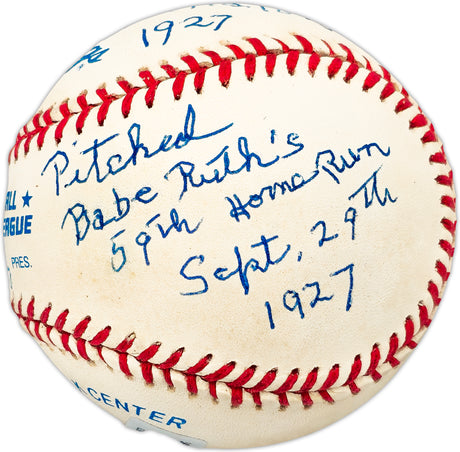 1927
Pitched
Babe Ruth's
59th Home Run
Sept. 29th
1927
ALL ★
EAGUE
PRES.
CENTER